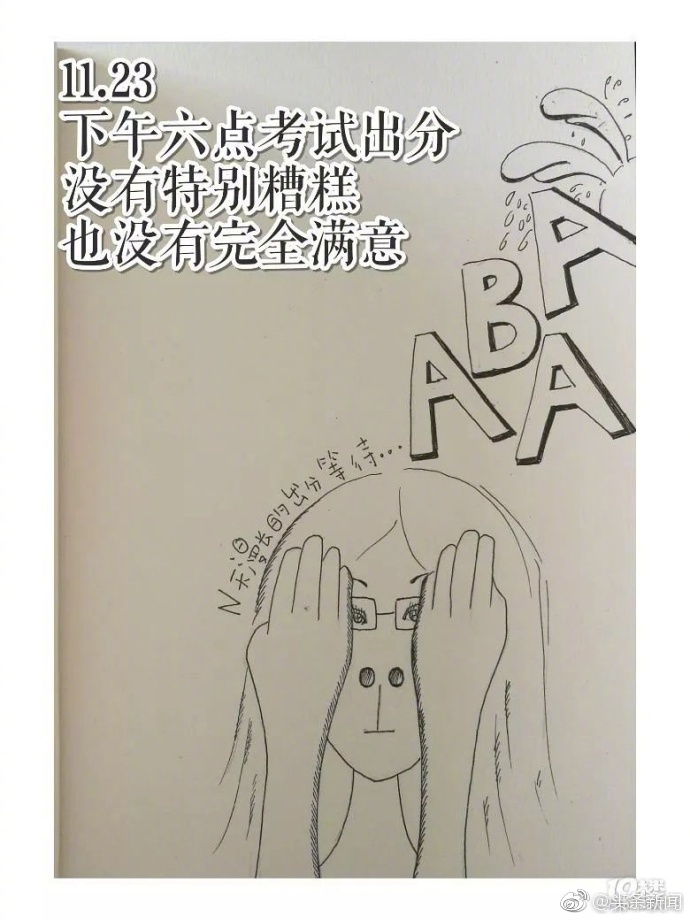 11.23
下午六点考试出分
没有特别糟糕
也没有完全满意
A
B
A A
N天漫长的出分等待...
19楼
@头条新闻